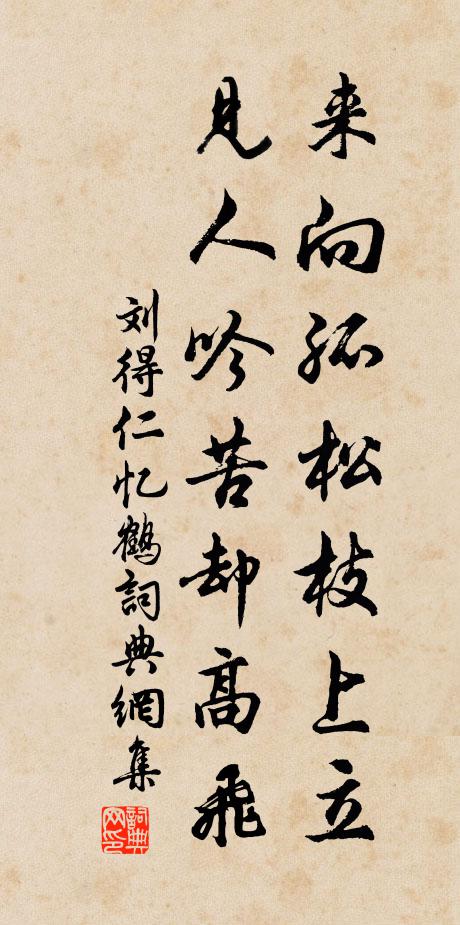 来向孤松枝上立
見人吟苦却高飛
刘得仁忆鶴詞典網集
詞典網印